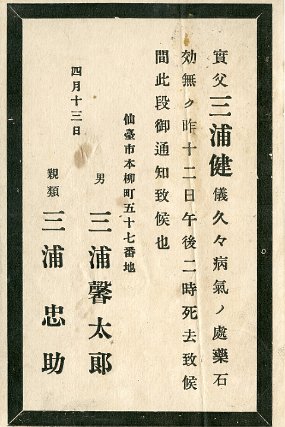 實父三浦健儀久々病氣ノ處藥石
効無ク昨十二日午後二時死去致候
間此段御通知致候也
仙臺市本柳町五十七番地
四月十三日
男 三浦馨太郎
親類 三浦忠助